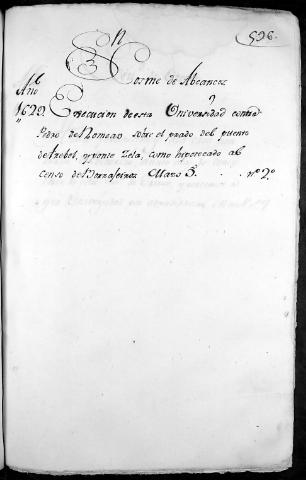 596.
Sn Cosme de Abeancos
Año
1629. Execucion de esta Universidad contra
Pedro de Romeao sobre el prado del puente
de , y ponte Zela, como hipotecado al
censo de Marzo 3. . . nº 2º